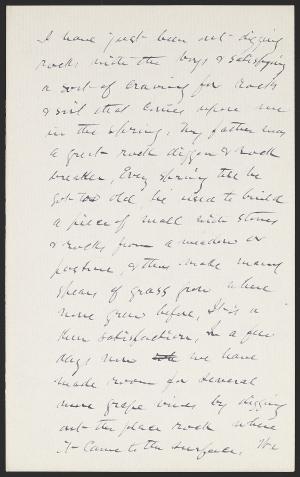 I have just been out digging
rocks with the boys & satisfying
a sort of craving for rocks
& soil that comes upon me
in the spring. My father was
a great rock digger & rock
breaker. Every spring till he
got too old, he used to build
a piece of wall with stones
& rocks from a meadow or
pasture, & thus make many
spears of grass grow where
none grew before. It is a
keen satisfaction. In a few
days now we have
made room for several
more grape vines by digging
out the place rock where
it came to the surface. We